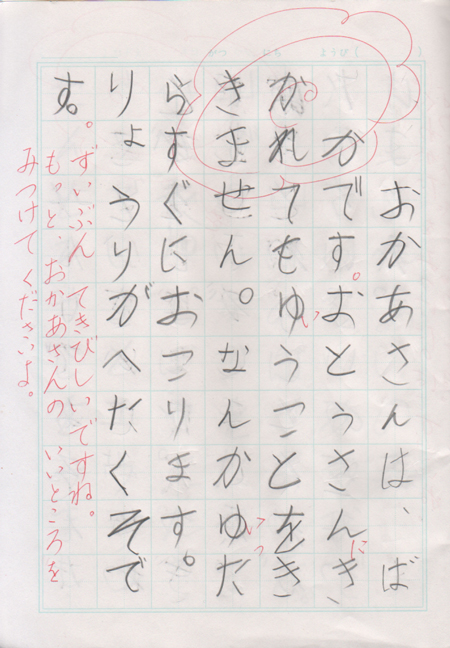 おかあさんは、ば
かです。おとうさんにき
かれてもゆうことをき
い
きません。なんかゆた
いっ
らすぐにおこります。
りょうりがへたくそで
す。
ずいぶん てきびしいですね。
もっと おかあさんの いいところを
みつけてくださいよ。